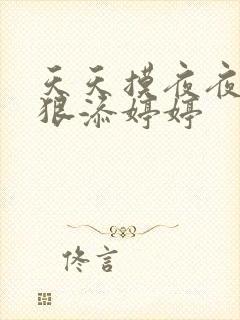 天天摸夜夜
狠添婷婷
佟言